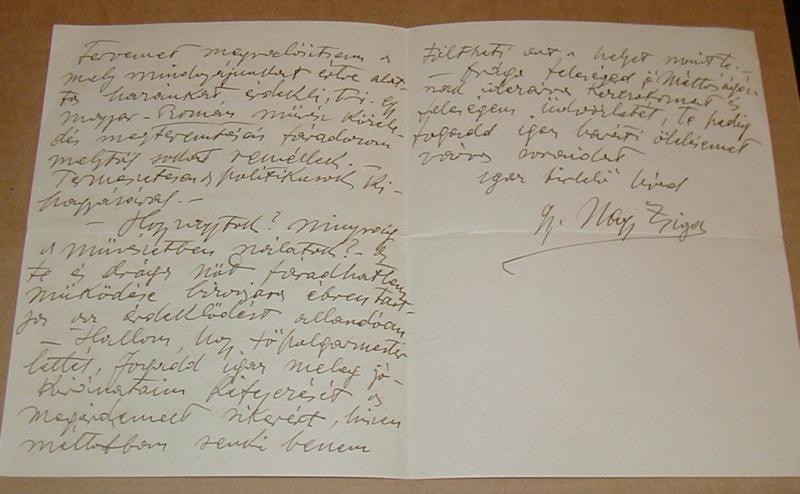 Tervemet megvalósitsam a
mely mindnyájunkat érdekli, t.i. egy
magyar-Roman művész közele-
dés megteremtésén fáradozom
melytől sokat remélek.
Természetesen a politikusok ki-
hagyásával. —
— Hogy vagytok? Mi ujság
a művészetben nálatok? —
te és drága nőd fáradhatlan
működése bizonyára ébren tart-
ja az érdeklődést állandóan
— Hallom, hogy főpolgármester
lettél, fogadd igaz meleg jó-
kivánataim kifejezését a
megérdemelt sikerért, hisz
méltóbban senki be nem
töltheti ezt a helyet mint te. —
— drága feleséged ő Méltóságá-
nak kézcsókomat és
feleségem üdvözletét, te pedig
fogadd igaz baráti ölelésemet
várva soraidat
igaz tisztelő hived
Gy. Nagy Zsiga